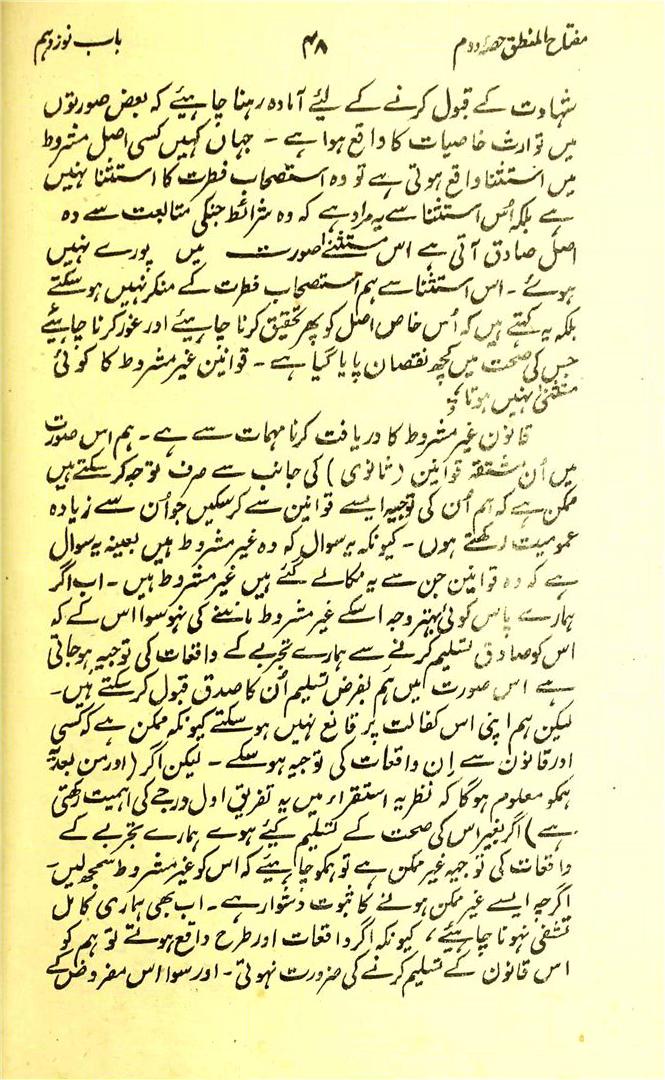 مفتاح المنطق حصۂ دوم ۴۸ باب نوزدہم
شہادت کے قبول کرنے کے لئے آمادہ رہنا چاہیئے کہ بعض صورتوں
میں توارث خاصیات کا واقع ہوا ہے ۔ جہان کہیں کسی اصل مشروط
میں استثنا واقع ہوتی ہے تو وہ استصحاب فطرت کا استثنا نہیں
ہے بلکہ اُس استثنا سے یہ مراد ہے کہ وہ شرائط جنکی متابعت سے وہ
اصل صادق آتی ہے اس مستثنےٰ صورت میں پورے نہیں
ہوئے ۔ اس استثنا سے ہم استصحاب فطرت کے منکر نہیں ہو سکتے
بلکہ یہ کہتے ہیں کہ اُس خاص اصل کو پھر تحقیق کرنا چاہیئے اور غور کرنا چاہیئے
جس کی صحت میں کچھ نقصان پایا گیا ہے ۔ قوانین غیر مشروط کا کوئی
نہیں ہوتا
قانون غیر مشروط کا دریافت کرنا مہمات سے ہے ۔ ہم اس صورت
میں اُن مشتقہ قوانین (ثانوی) کی جانب سے صرف توجہ کر سکتے ہیں
ممکن ہے کہ ہم اُن کی توجیہ ایسے قوانین سے کر سکیں جو اُن سے زیادہ
عمومیت رکھتے ہوں ۔ کیونکہ یہ سوال کہ وہ غیر مشروط ہیں بعینہ یہ سوال
ہے کہ وہ قوانین جن سے یہ نکالے گئے ہیں غیر مشروط ہیں ۔ اب اگر
ہمارے پاس کوئی بہتر وجہ اسکے غیر مشروط ماننے کی نہو سوا اس کے کہ
اس کو صادق تسلیم کرنے سے ہمارے تجربے کے واقعات کی توجیہ ہو جاتی
ہے اس صورت میں ہم بفرض تسلیم اُن کا صدق قبول کر سکتے ہیں ۔
لیکن ہم اپنی اس کفالت پر قانع نہیں ہو سکتے کیونکہ ممکن ہے کہ کسی
اور قانون سے اِن واقعات کی توجیہ ہو سکے ۔ لیکن اگر (اور من بعد یہ
ہمکو معلوم ہوگا کہ نظریہ استقراء میں یہ تفریق اول درجے کی اہمیت رکھتی
ہے) اگر بغیر اس کی صحت کے تسلیم کیے ہوے ہمارے تجربے کے
واقعات کی توجیہ غیر ممکن ہے تو ہمکو چاہیئے کہ اس کو غیر مشروط سمجھ لیں ۔
اگرچہ ایسے غیر ممکن ہونے کا ثبوت دشوار ہے ۔ اب بھی ہماری کامل
تشفی نہونا چاہیئے، کیونکہ اگر واقعات اور طرح واقع ہوتے تو ہم کو
اس قانون کے تسلیم کرنے کی ضرورت نہوتی ۔ اور سوا اس مفروض کے